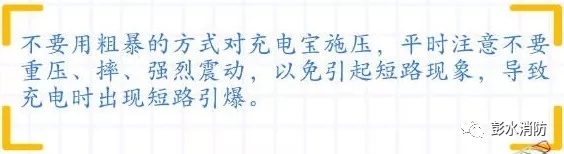 不要用粗暴的方式对充电宝施压，平时注意不要
重压、摔、强烈震动，以免引起短路现象，导致
充电时出现短路引爆。
彭水消防